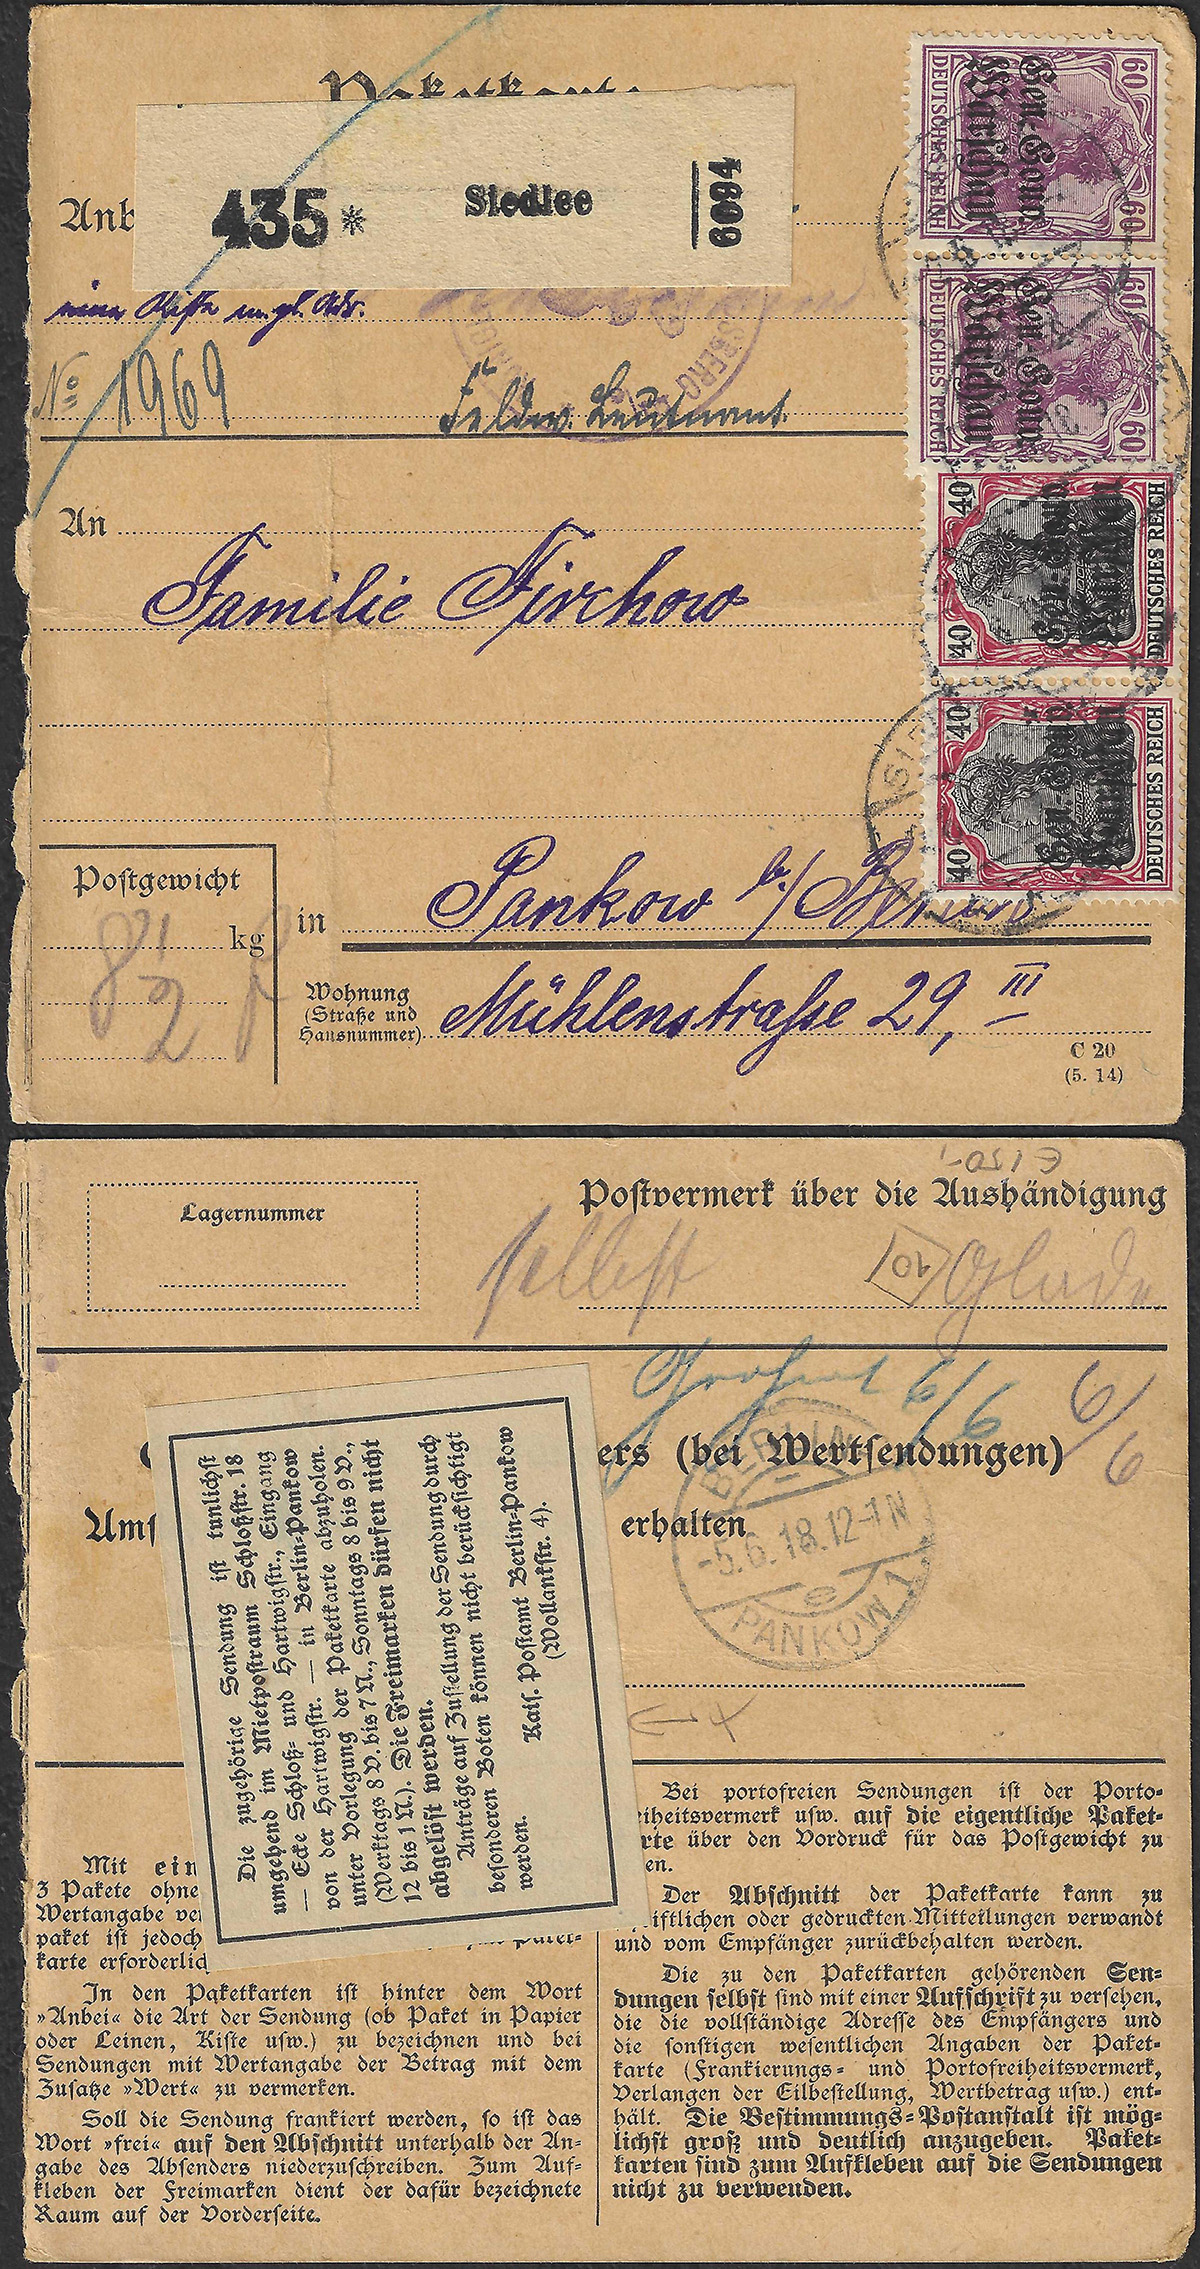 Paketkarte
435* Siedlce 6094
Anb
eine Kiste m. gl. Adr.
No 1969
Feldw. Leutnant.
An
Familie Firchow
Postgewicht
8 1/2 kg
in Pankow b./Berlin
Wohnung
(Straße und
Hausnummer)
Mühlenstraße 29, III
C 20
(5. 14)
60 60
DEUTSCHES REICH
Gen.-Gouv.
Warschau
60 60
DEUTSCHES REICH
Gen.-Gouv.
Warschau
40 40
DEUTSCHES REICH
Gen.-Gouv.
Warschau
40 40
DEUTSCHES REICH
Gen.-Gouv.
Warschau
Lagernummer
Postvermerk über die Aushändigung
selbst
10
6/6
6/6
ers (bei Wertsendungen)
Ums
erhalten
BERLIN
-5.6.18.12-1N
PANKOW 1
e
Die zugehörige Sendung ist tunlichst
umgehend im Mietpostraum Schloßstr. 18
— Ecke Schloß- und Hartwigstr., Eingang
von der Hartwigstr. — in Berlin-Pankow
unter Vorlegung der Paketkarte abzuholen.
(Werktags 8 V. bis 7 N., Sonntags 8 bis 9 V.,
12 bis 1 N.). Die Freimarken dürfen nicht
abgelöst werden.
Anträge auf Zustellung der Sendung durch
besonderen Boten können nicht berücksichtigt
werden.
Kais. Postamt Berlin-Pankow
(Wollankstr. 4).
Mit ein
3 Pakete ohne
Wertangabe ve
paket ist jedoch
karte erforderlic
In den Paketkarten ist hinter dem Wort
»Anbei« die Art der Sendung (ob Paket in Papier
oder Leinen, Kiste usw.) zu bezeichnen und bei
Sendungen mit Wertangabe der Betrag mit dem
Zusatze »Wert« zu vermerken.
Soll die Sendung frankiert werden, so ist das
Wort »frei« auf den Abschnitt unterhalb der An-
gabe des Absenders niederzuschreiben. Zum Auf-
kleben der Freimarken dient der dafür bezeichnete
Raum auf der Vorderseite.
Bei portofreien Sendungen ist der Porto-
iheitsvermerk usw. auf die eigentliche Paket-
rte über den Vordruck für das Postgewicht zu
en.
Der Abschnitt der Paketkarte kann zu
iftlichen oder gedruckten Mitteilungen verwandt
und vom Empfänger zurückbehalten werden.
Die zu den Paketkarten gehörenden Sen-
dungen selbst sind mit einer Aufschrift zu versehen,
die die vollständige Adresse des Empfängers und
die sonstigen wesentlichen Angaben der Paket-
karte (Frankierungs- und Portofreiheitsvermerk,
Verlangen der Eilbestellung, Wertbetrag usw.) ent-
hält. Die Bestimmungs-Postanstalt ist mög-
lichst groß und deutlich anzugeben. Paket-
karten sind zum Aufkleben auf die Sendungen
nicht zu verwenden.